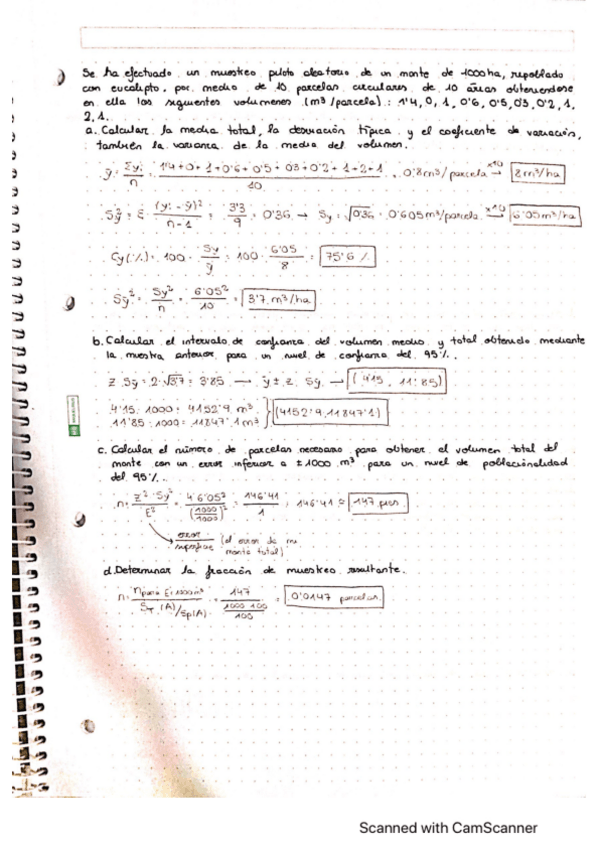 Se ha efectuado un muestreo piloto aleatorio de un monte de 1000ha, repoblado
con eucalipto, por medio de 10 parcelas circulares de 10 áreas obteniendose
en ella los siguientes volumenes (m³/parcela): 1'4, 0, 1, 0'6, 0'5, 0'3, 0'2, 1,
2, 1.
a. Calcular la media total, la desviación típica y el coeficiente de variación,
también la varianza de la media del volumen.
ȳ = Σyi / n = 1'4+0+1+0'6+0'5+0'3+0'2+1+2+1 / 10 = 0'8m³/parcela →x10 8m³/ha
Sȳ² = Σ (yi - ȳ)² / n-1 = 3'3 / 9 = 0'36 → Sy = √0'36 = 0'605m³/parcela →x10 6'05m³/ha
Cy(%) = 100 · Sy / ȳ = 100 · 6'05 / 8 = 75'6 %
Sȳ² = Sy² / n = 6'05² / 10 = 3'7 m³/ha
b. Calcular el intervalo de confianza del volumen medio y total obtenido mediante
la muestra anterior para un nivel de confianza del 95%.
z · Sȳ = 2 · √3'7 = 3'85 → ȳ ± z · Sȳ → (4'15, 11'85)
4'15 · 1000 = 4152'9 m³
11'85 · 1000 = 11847'1m³ } (4152'9, 11847'1)
c. Calcular el número de parcelas necesario para obtener el volumen total del
monte con un error inferior a ±1000 m³ para un nivel de
del 95%.
n = z² · Sy² / E² = 4 · 6'05² / (1000/1000)² = 146'41 / 1 = 146'41 ≈ 147
error / superficie (el error de mi
monte total)
d. Determinar la fracción de muestreo resultante.
n = n para E=1000m³ / ST (A)/Sp(A) = 147 / 1000·100 / 100 = 0'0147 parcelas
Scanned with CamScanner